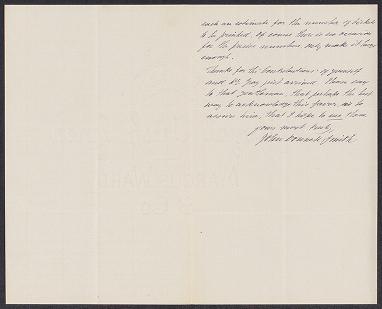 such an estimate for the number of tickets
to be printed. Of course there is no occasion
for the precise number, only make it large
enough.
Thanks for the Contributions of yourself
and Dr. Gray just arrived. Please say
to that gentleman, that perhaps the best
way to acknowledge this favor, is to
assure him, that I hope to use them
yours most truly,
John Donnell Smith